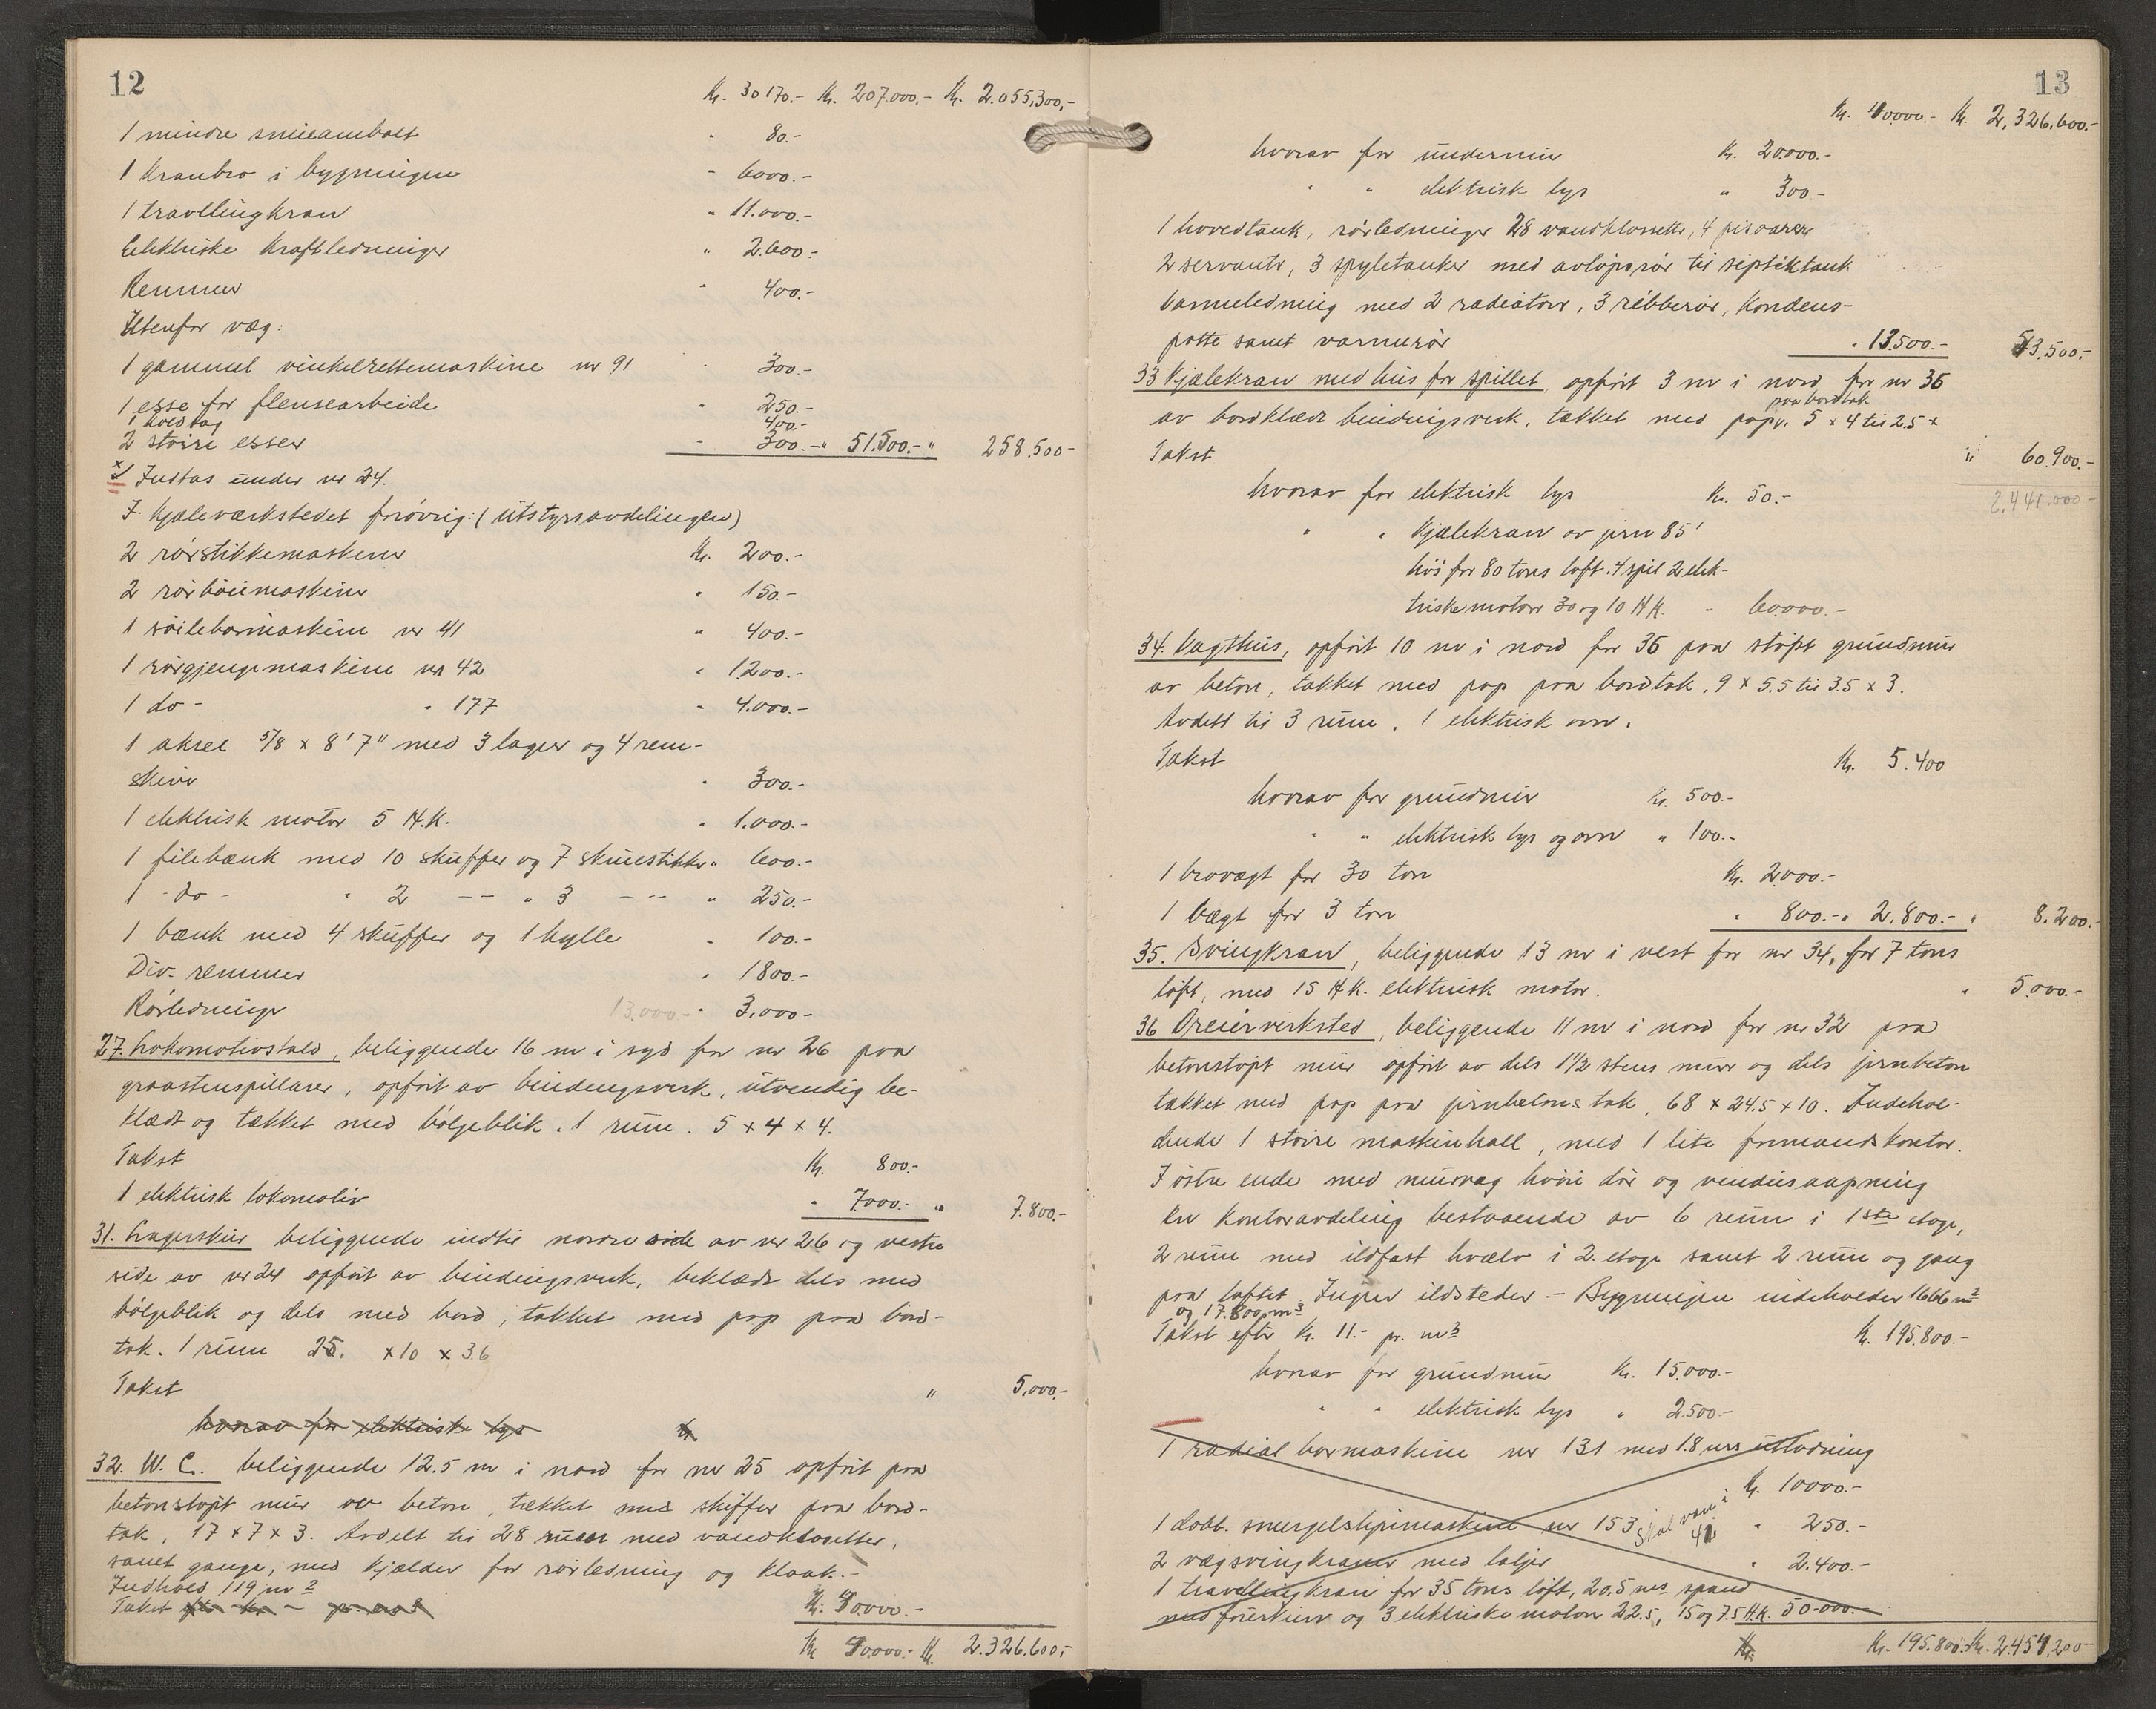 12
Kr. 30170.- Kr. 207.000,- Kr. 2.055,300,-
1 mindre smieambolt " 80.-
1 Kranbro i bygningen " 6000.-
1 travllingkran " 11.000.-
Elektriske Kraftledninger " 2.600.-
Remmer " 400.-
Utenfor væg:
1 gammel vinkelrettemaskine nr 91 " 300.-
1 esse for flensearbeide " 250.-
1 koldsag 400.-
2 större esser " 300.- " 51.500.- " 258.500-
x) Indtas under nr 24.
I Kjeleværkstedet forövrig: (utstyrsavdelingen)
2 rörstikkemaskiner Kr. 200.-
2 rörböiemaskiner " 150.-
1 söileboremaskine nr 41 " 400.-
1 rörgjengemaskine nr 42 " 1200.-
1 do - " 177 " 4.000.-
1 aksel 5/8 x 8' 7" med 3 lager og 4 rem-
skiver " 300.-
1 elektrisk motor 5 H.K. " 1.000.-
1 filebænk med 10 skuffer og 7 skruestikker " 600.-
1 - do - " 2 -- " 3 --- " 250.-
1 bænk med 4 skuffer og 1 hylle " 100.-
Div. remmer " 1800.-
Rörledninger 13.000- " 3.000-
27. Lokomotivstald, beliggende 16 m i syd for nr 26 paa
graastenspillarer, opfört av bindingsverk, utvendig be-
klædt og tækket med bölgeblik. 1 rum. 5 x 4 x 4.
Takst Kr. 800.-
1 elektrisk lokomotiv " 7000.- " 7.800.-
31. Lagerskur beliggende indtil nordre side av nr 26 og vestre
side av nr 24 opfört av bindingsverk, beklædt dels med
bölgeblik og dels med bord, tækket med pap paa bord-
tak. 1 rum 25. x 10 x 3.6
Takst " 5.000.-
hvorav for elektrisk lys Kr
32. W. C. beliggende 12.5 m i nord for nr 25 opfört paa
betonstöpt mur av beton, tækket med skiffer paa bord-
tak, 17 x 7 x 3. Avdelt til 28 rum med vandklosetter,
samt gange, med kjælder for rörledning og kloak.-
Indhold 119 m2
Takst efter Kr. - pr. m2 Kr. 40000.-
Kr 40.000.- Kr. 2.326.600,-
13
Kr. 40000.- Kr. 2,326.600.-
hvorav for undermur Kr. 20.000.-
" " elektrisk lys " 300-
1 hovedtank, rörledninger 28 vandklosetter, 4 pisoarer
2 servanter, 3 spyletanker med avlöpsrör til septiktank
Varmeledning med 2 radiatorer, 3 ribberör, Kondens-
potte samt varmerör " 13.500.- 53,500,-
33 Kjelekran med hus for spillet, opfört 3 m i nord for nr 36
av bordklædt bindingsverk, tækket med pap paa bordtak 5 x 4 til 2.5 x
Takst " 60.900.-
hvorav for elektrisk lys Kr. 50.- 2.441.000-
" " Kjelekran av jern 85'
hös for 80 tons löft. 4 spil 2 elek-
triske motorer 30 og 10 H.K. " 60000.-
34. Vagthus, opfört 10 m i nord for 36 paa stöpt grundmur
av beton, tækket med pap paa bordtak. 9 x 5.5 til 3.5 x 3.
Avdelt til 3 rum. 1 elektrisk ovn.
Takst Kr. 5.400
hvorav for grundmur Kr. 500.-
" " elektrisk lys og ovn " 100.-
1 brovægt for 30 ton Kr. 2000.-
1 Vægt for 3 ton " 800.- " 2.800.- " 8.200.-
35. Svingkran, beliggende 13 m i vest for nr 34, for 7 tons
löft, med 15 H.K. elektrisk motor. " 5.000.-
36 Dreierverksted, beliggende 11 m i nord for nr 32 paa
betonstöpt mur opfört av dels 1 1/2 stens mur og dels jernbeton
tækket med pap paa jernbetons tak, 68 x 24.5 x 10. Indehol-
dende 1 större maskinhall, med 1 lite formandskontor.
I östre ende med murvæg hvori dör og vindusaapning
En Kontoravdeling bestaaende av 6 rum i 1ste etage,
2 rum med ildfast hvælv i 2. etage samt 2 rum og gang
paa loftet. Ingen ildsteder. - Bygningen indeholder 1666 m2
og 17.800 m3
Takst efter Kr. 11.- pr. m3 Kr. 195.800.-
hvorav for grundmur Kr. 15.000.-
" " elektrisk lys " 2.500.-
1 radial bormaskine nr 131 med 1.8 mrs utladning
Kr. 10000.-
1 dobb. smergelslipemaskine nr 153 skal være i 42 " 250.-
2 vægsvingkraner med taljer " 2.400.-
1 travellingkran for 35 tons löft, 20.5 ms spand
med förerskur og 3 elektriske motorer 22.5, 15 og 7.5 H.K. 50.000.-
Kr. Kr. 195.800.- Kr. 2.454,200-